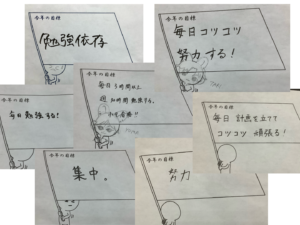 今年の目標
勉強依存
今年の目標
毎日コツコツ
努力する!
今年の目標
毎日勉強する!
今年の目標
毎日5時間以上
週30時間勉強する。
今年の目標
毎日計画を立てて
コツコツ頑張る!
今年の目標
集中。
今年の目標
努力